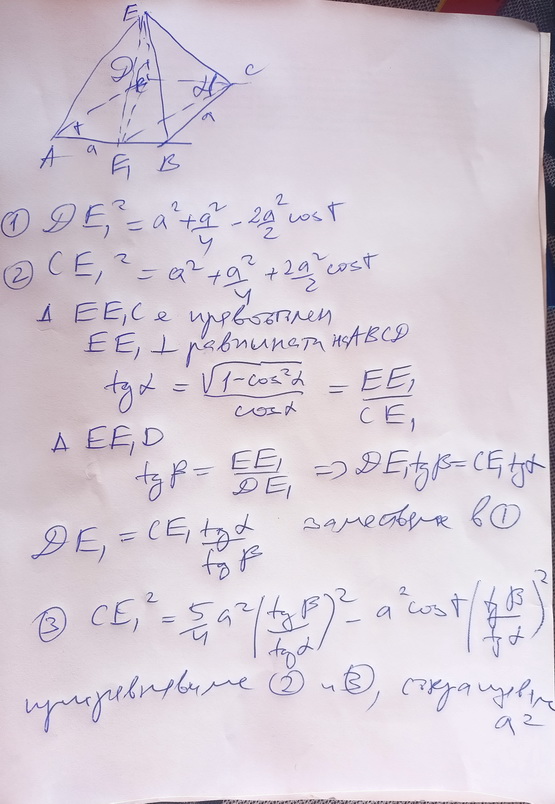 E
D
C
α
γ
a
a
A
E₁
B
① DE₁² = a² + a²/4 - 2a²/2 cosγ
② CE₁² = a² + a²/4 + 2a²/2 cosγ
Δ EE₁C е правоъгълен
EE₁ ⊥ равнината на ABCD
tgα = √(1-cos²α)/cosα = EE₁/CE₁
Δ EE₁D
tgβ = EE₁/DE₁ => DE₁tgβ = CE₁tgα
DE₁ = CE₁ tgα/tgβ заместваме в ①
③ CE₁² = 5/4 a² (tgβ/tgα)² - a² cosγ (tgβ/tgα)²
приравняваме ② и ③, съкращаваме
a²